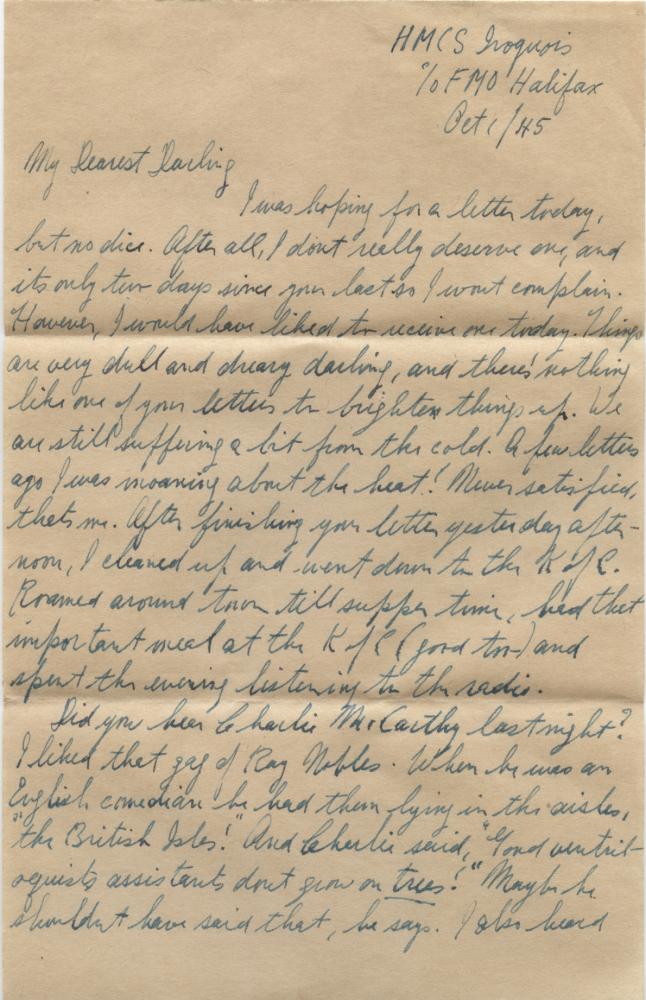 HMCS Iroquois
℅ FMO Halifax
Oct 1/45
My Dearest Darling
I was hoping for a letter today,
but no dice. After all, I dont really deserve one, and
its only two days since your last so I wont complain.
However, I would have liked to receive one today. Things
are very dull and dreary darling, and there's nothing
like one of your letters to brighten things up. We
are still suffering a bit from the cold. A few letters
ago I was moaning about the heat! Never satisfied,
thats me. After finishing your letter yesterday after-
noon, I cleaned up and went down to the K of C.
Roamed around town till supper time, had that
important meal at the K of C (good too) and
spent the evening listening to the radio.
Did you hear Charlie McCarthy last night?
I liked that gag of Ray Nobles. When he was an
English comedian he had them lying in the aisles,
"the British Isles!" And Charlie said, "Good ventril-
oquists assistants dont grow on trees!" Maybe he
shouldn't have said that, he says. I also heard